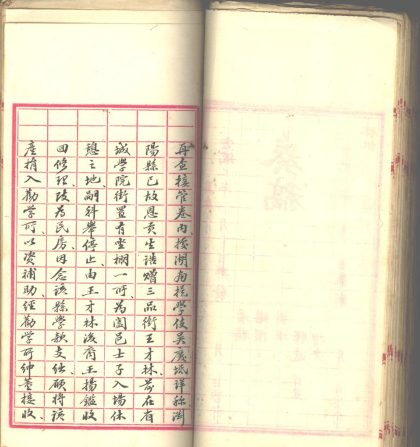 再查接管卷內接湖南提學使吳慶坻詳稱瀏
陽縣已故恩貢生誥贈三品銜王才林前在省
城學院街置有坐棚一所為闔邑士子入場休
憩之地嗣科舉停止由王才林後裔王揚鑑收
回修理改為民房因念該縣學款支絀願將該
產捐入勸學所以資補助經勸學所紳董接收